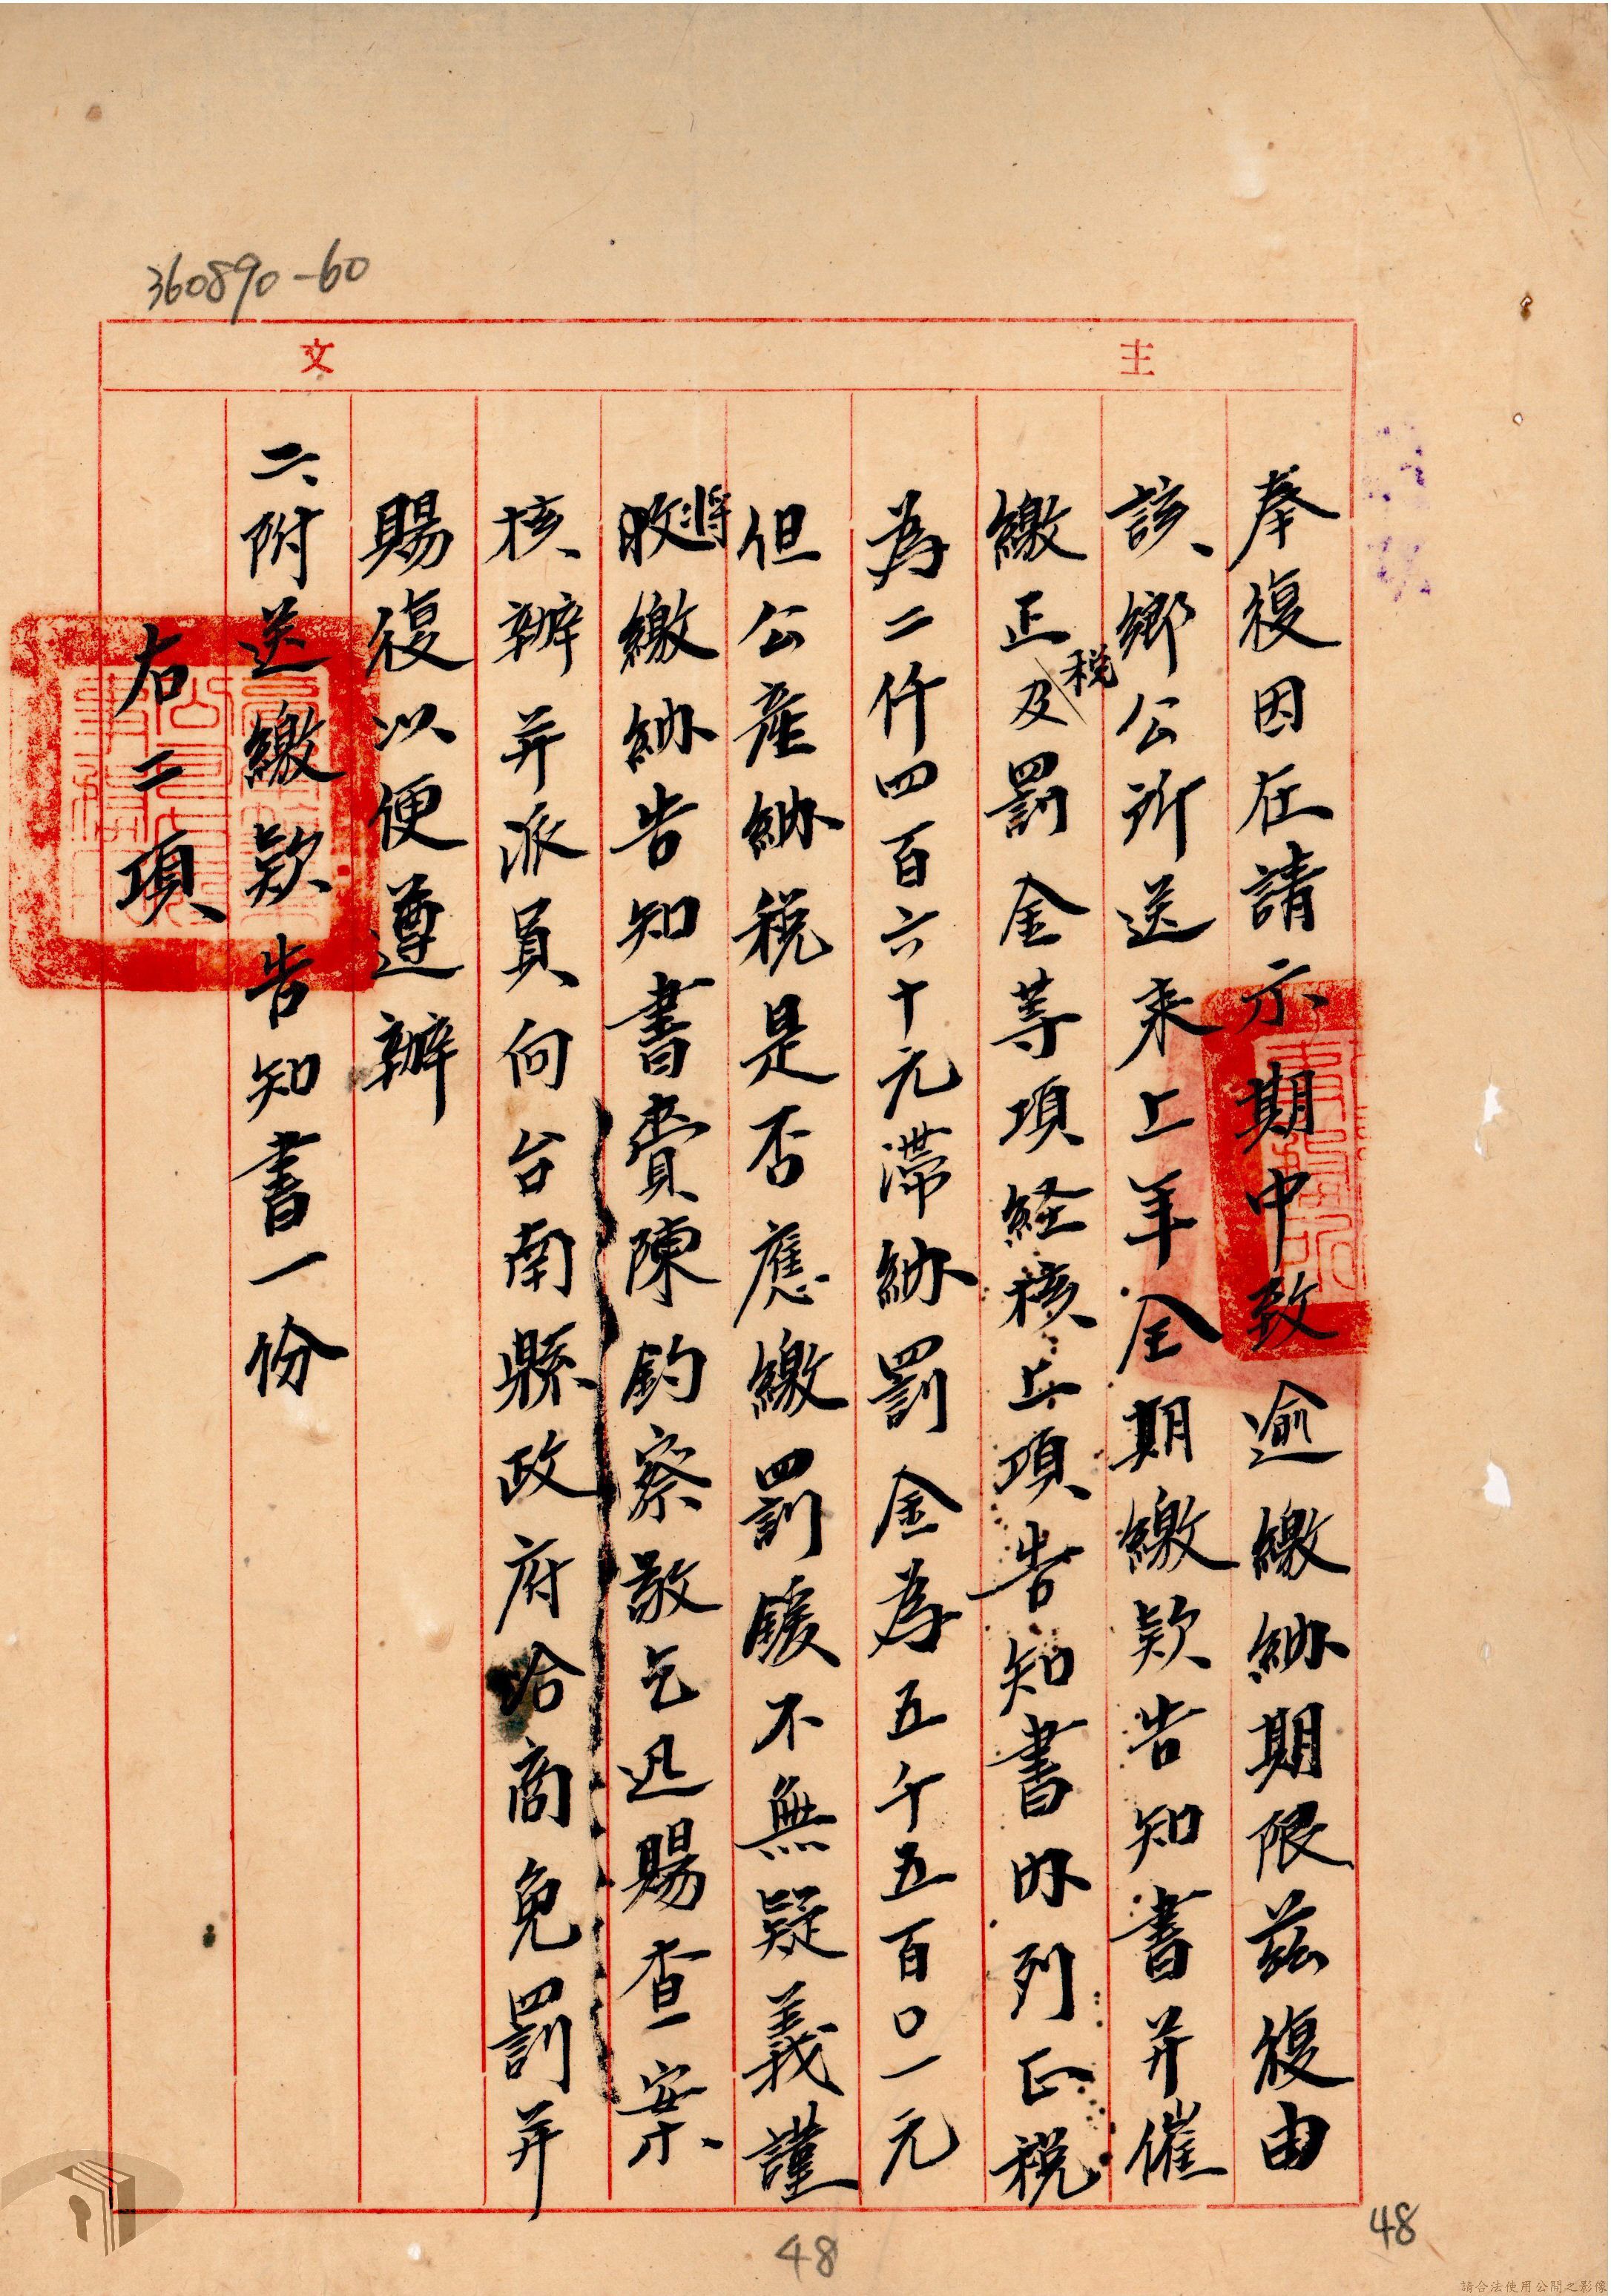 360890-60
主文
奉復因在請示期中致逾繳納期限茲復由
該鄉公所送来上半全期繳款告知書并催
繳正稅及罰金等項経核上項告知書內列正税
為二仟四百六十元滞納罰金為五千五百〇一元
但公產納税是否應繳罰鍰不無疑義謹
將收繳納告知書賫陳鈞察敬乞迅賜查案
核辦并派員向台南縣政府洽商免罰并
賜復以便遵辦
二、附送繳款告知書一份
右二項
48
48
請合法使用公開之影像